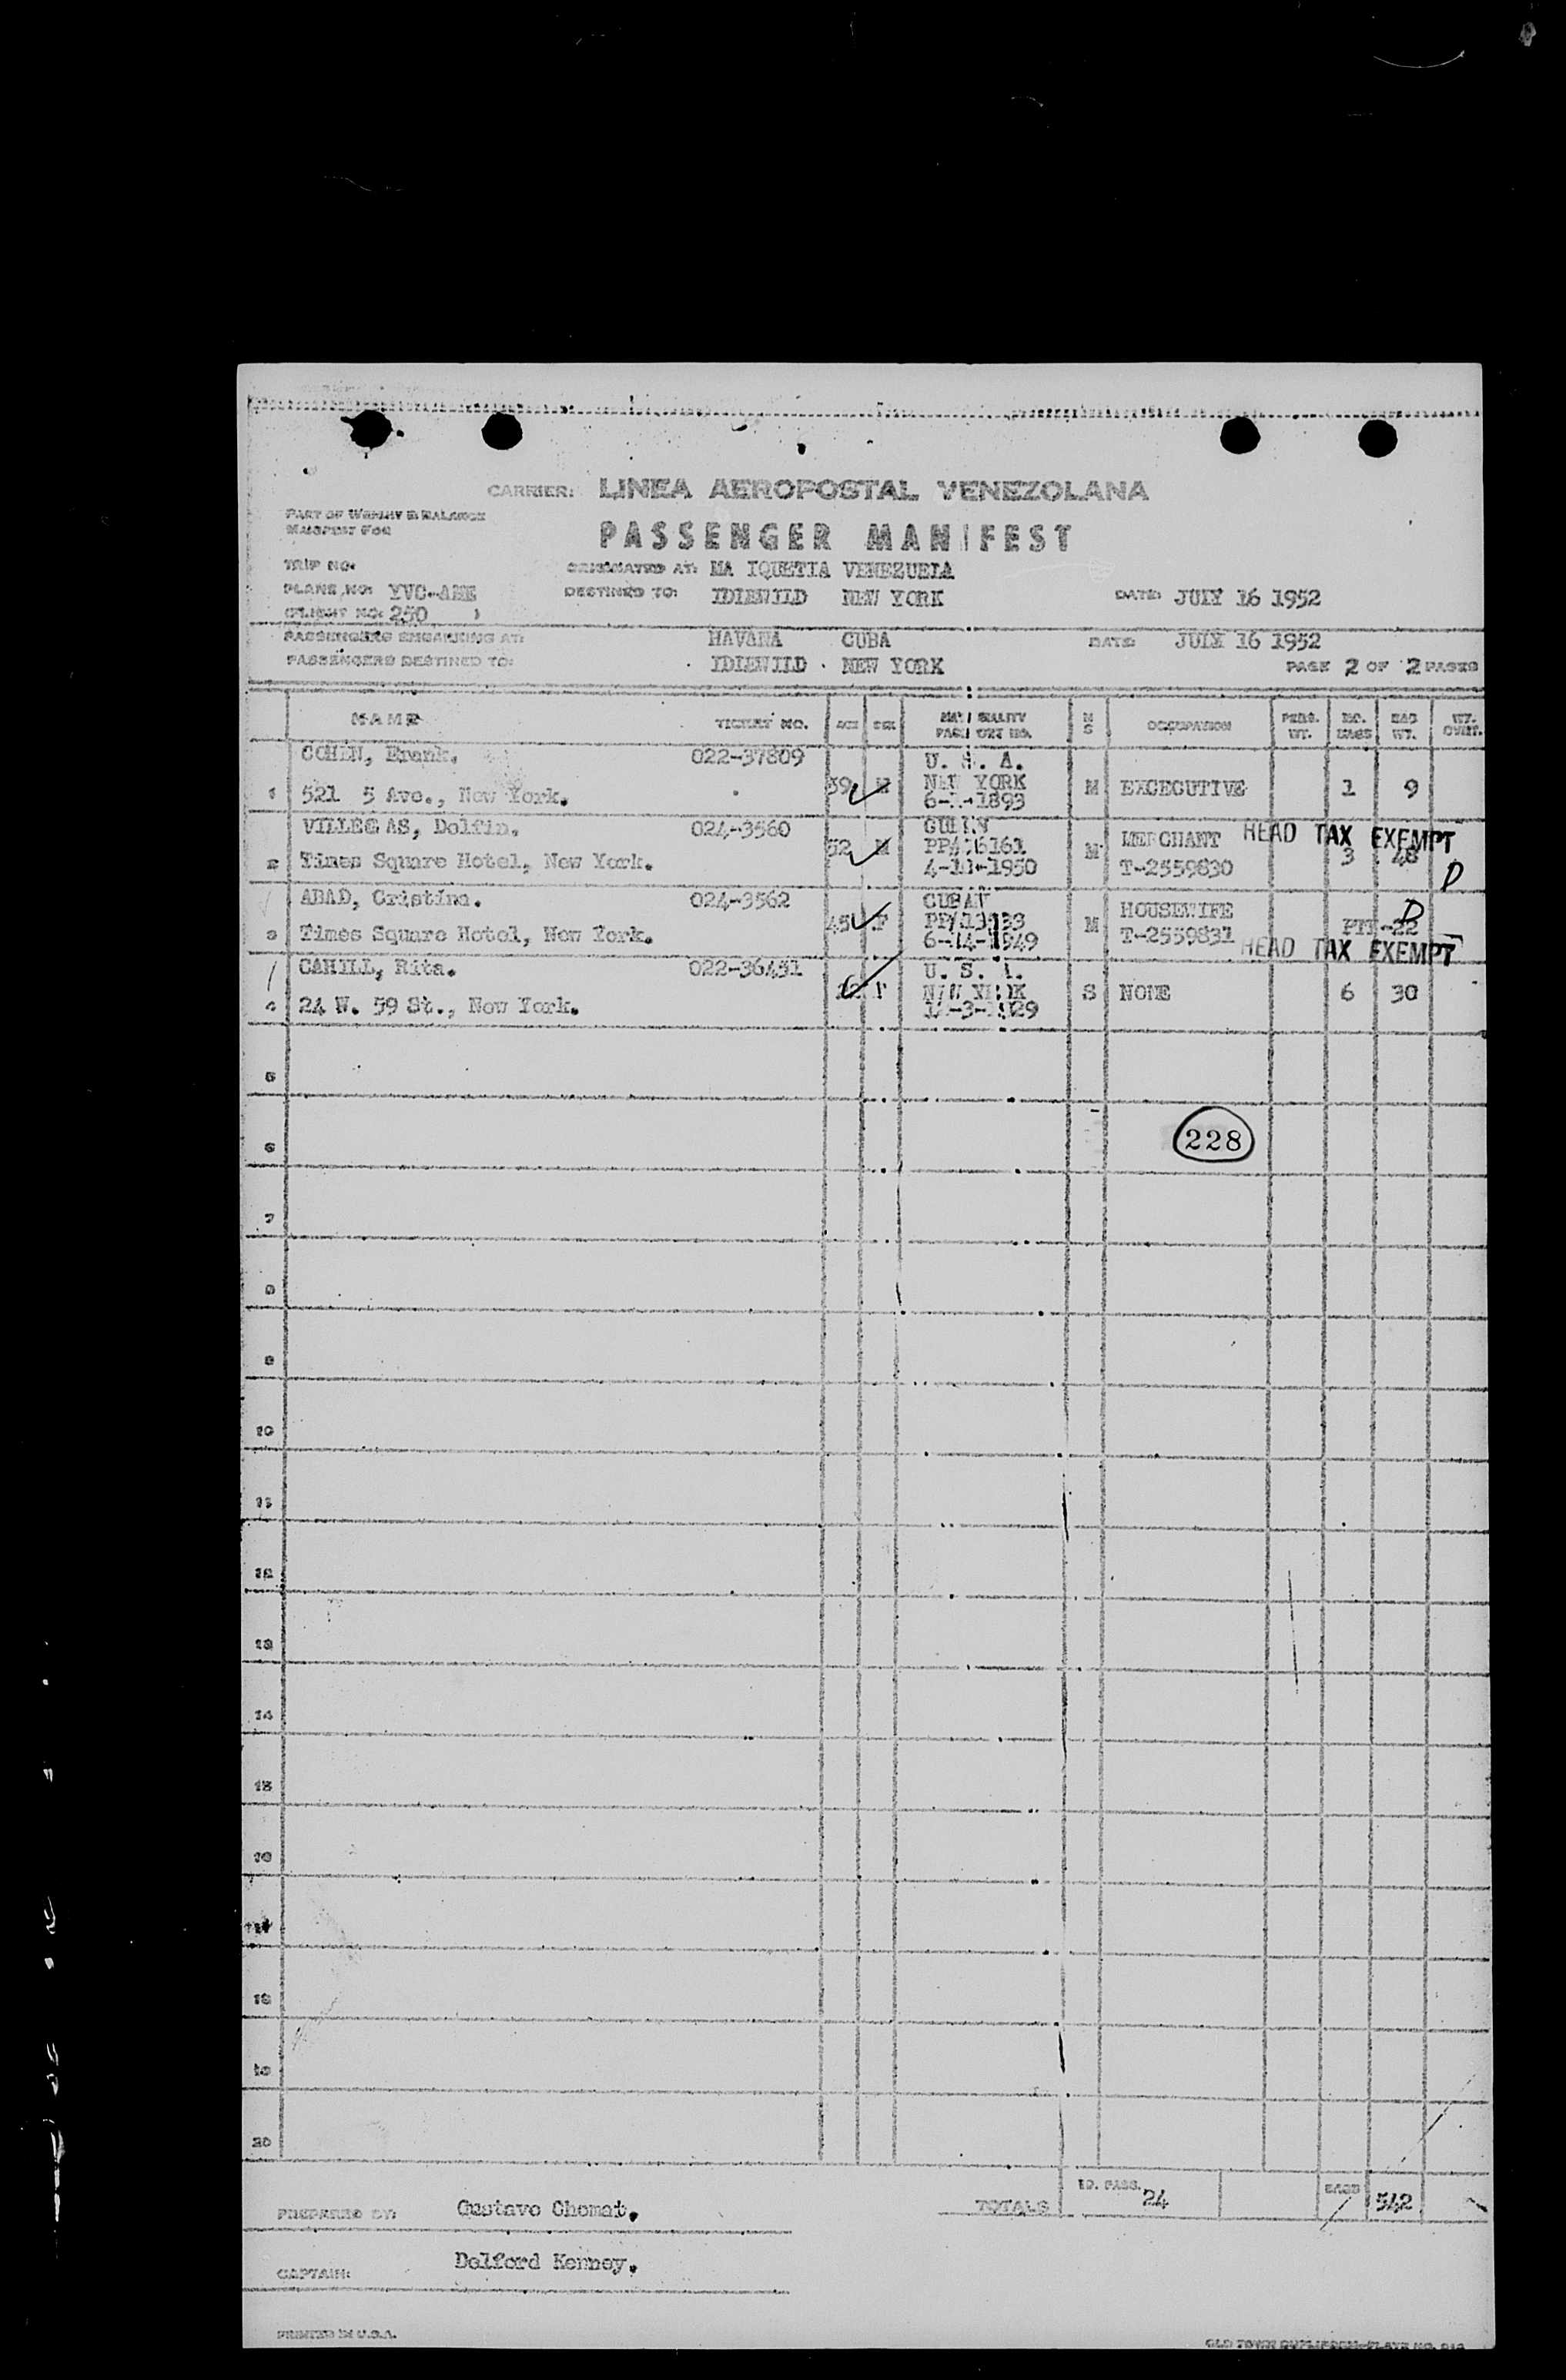 CARRIER: LINEA AEROPOSTAL VENEZOLANA
PART OF WEIGHT & BALANCE
MANIFEST FOR
PASSENGER MANIFEST
TRIP NO:
ORIGINATED AT: MA IQUETIA VENEZUELA
PLANE NO: YVC-AME
DESTINED TO: IDLEWILD NEW YORK DATE: JULY 16 1952
(FLIGHT NO: 250 )
PASSENGERS EMBARKING AT: HAVANA CUBA DATE: JULY 16 1952
PASSENGERS DESTINED TO: IDLEWILD NEW YORK PAGE 2 OF 2 PAGES
NAME TICKET NO. AGE SEX NATIONALITY PASSPORT NO. M S OCCUPATION PERS. WT. NO. BAGS BAG WT. WT. OVER.
COHEN, Frank. 022-37809 U. S. A.
1 521 5 Ave., New York. 59 M NEW YORK M EXCECUTIVE 1 9
1893
VILLEGAS, Dolfin. 024-3560 MERCHANT HEAD TAX EXEMPT
2 Times Square Hotel, New York. 52 M 6161 M 3 48
1950 T-2559830 D
ABAD, Cristina. 024-3562 CUBAN HOUSEWIFE D
3 Times Square Hotel, New York. 45 F M T-2559831 -22
6-14-1949 HEAD TAX EXEMPT
CAHILL, Rita. 022-36451 U. S. A.
4 24 W. 59 St., New York. F NEW YORK S NONE 6 30
5
6 228
7
8
9
10
11
12
13
14
15
16
17
18
19
20
TOTALS NO. PASS. 24 BAGS 542
PREPARED BY: Gustavo Chomat.
CAPTAIN: Delford Kenney.
PRINTED IN U.S.A.